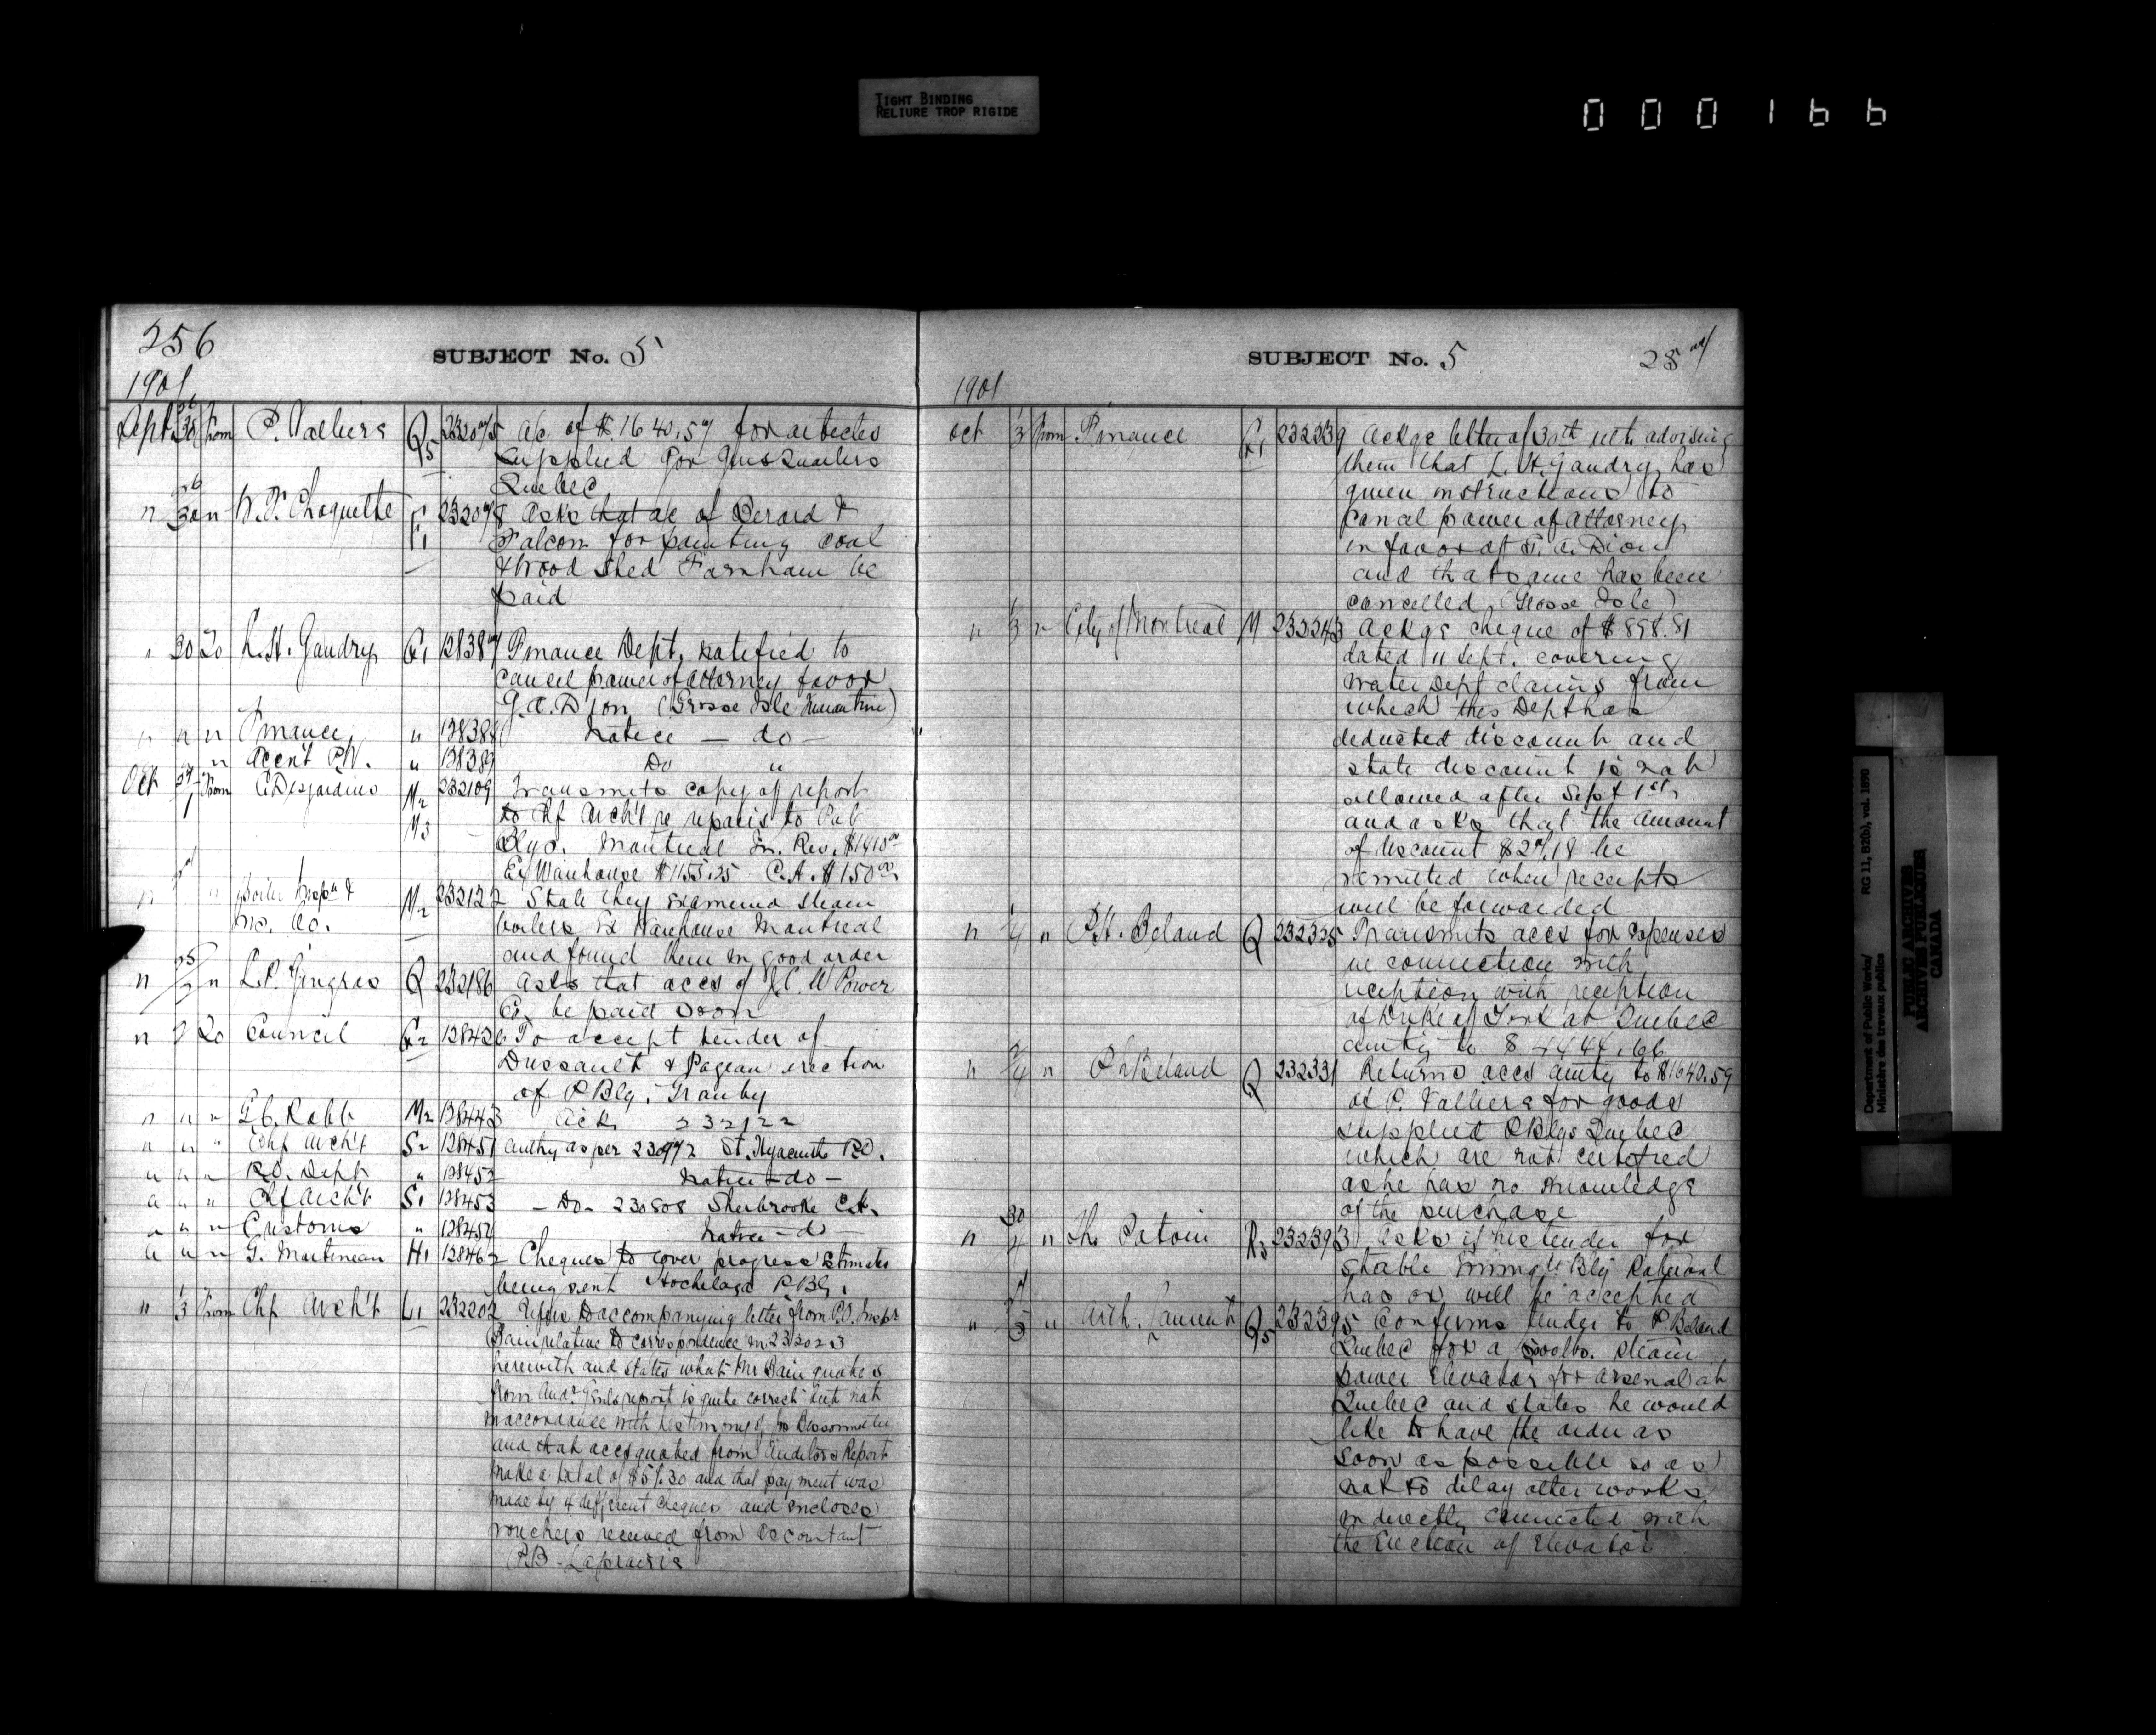 TIGHT BINDING
RELIURE TROP RIGIDE
000166
256
SUBJECT No. 5
1901
Sept 26/30 from P. Valliere Q5 232075 a/c of $1640.59 for articles
supplied for
Quebec
" 26/30 " P. Choquette F1 232078 Asks that a/c of Berard &
Falcon for painting coal
& wood shed Farnham be
paid
" 30 To L.H. Gaudry G1 128387 Finance Dept. notified to
cancel power of attorney favor
G.A. Dion (Grosse Isle Quarantine)
" " " Finance " 128388 Notice - do -
" Accn't P.W. " 128389 Do "
Oct 27/1 From C. Desjardins M2 232109 Transmits copy of report
M3 to Chf Arch't re repairs to Pub
Blgs. Montreal In. Rev. $1410.00
Ex Warehouse $1155.25 C.H. $150.00
" " Boiler Insp'n & M2 232122 State they examined steam
Ins. Co. boilers Ex Warehouse Montreal
and found them in good order
" " L.P. Gingras Q 232186 Asks that accs of Power
Co. be paid soon
" 2 To Council G2 128426 To accept tender of
Dussault & Pageau erection
of P Blg. Granby
" " " Robb M2 128443 Ack. 232122
" " " Chf Arch't S2 128451 Authy as per 230972 St. Hyacinthe P.O.
" " " P.O. Dept " 128452 Notice - do -
" " " Chf Arch't S1 128453 - Do - 230808 Sherbrooke C.H.
" " " Customs " 128454 Notice - do -
" " " G. Martineau H1 128462 Cheques to cover progress estimates
being sent Hochelaga P. Blg.
" 1/3 from Chf Arch't L1 232202 Refers to accompanying letter from P.O. Insp'r
Bain relative to correspondence in 232023
herewith and states what Mr Bain quotes
from Aud'r Genls report is quite correct but not
in accordance with testimony of
and that accs quoted from Auditors Report
make a total of $51.30 and that payment was
made by 4 different cheques and encloses
vouchers received from accountant
P.B. Laprairie
SUBJECT No. 5
257
1901
Oct 1/3 from Finance G1 232239 Ackgs letter of 30th ulto advising
them that L.H. Gaudry has
given instructions to
cancel power of attorney
in favor of G.A. Dion
and that same has been
cancelled (Grosse Isle)
" 1/3 " City of Montreal M 232243 Ackgs cheque of $898.81
dated 11 Sept. covering
Water Dept claims from
which this Dept has
deducted discount and
state discount is not
allowed after Sept 1st,
and asks that the amount
of discount $27.18 be
remitted when receipts
will be forwarded
" 1/4 " P.H. Beland Q 232325 Transmits accs for expenses
in connection with
reception with reception
of Duke of York at Quebec
amtg to $4444.66
" 2/4 " Ph Beland Q 232331 Returns accs amtg to $1640.59
of P. Valliere for goods
supplied P Blgs Quebec
which are not certified
as he has no knowledge
of the purchase
" 30/4 " Ths Potvin R3 232393 Asks if his tender for
stable Immg'n Blg Roberval
has or will be accepted
" " Arth. Q5 232395 Confirms tender to P Beland
Quebec for a lbs. steam
power elevator for arsenal at
Quebec and states he would
like to have the order as
soon as possible so as
not to delay other works
indirectly connected with
the erection of elevator
Department of Public Works/
Ministère des travaux publics
RG 11, B2(b), vol. 1890
PUBLIC ARCHIVES
ARCHIVES PUBLIQUES
CANADA